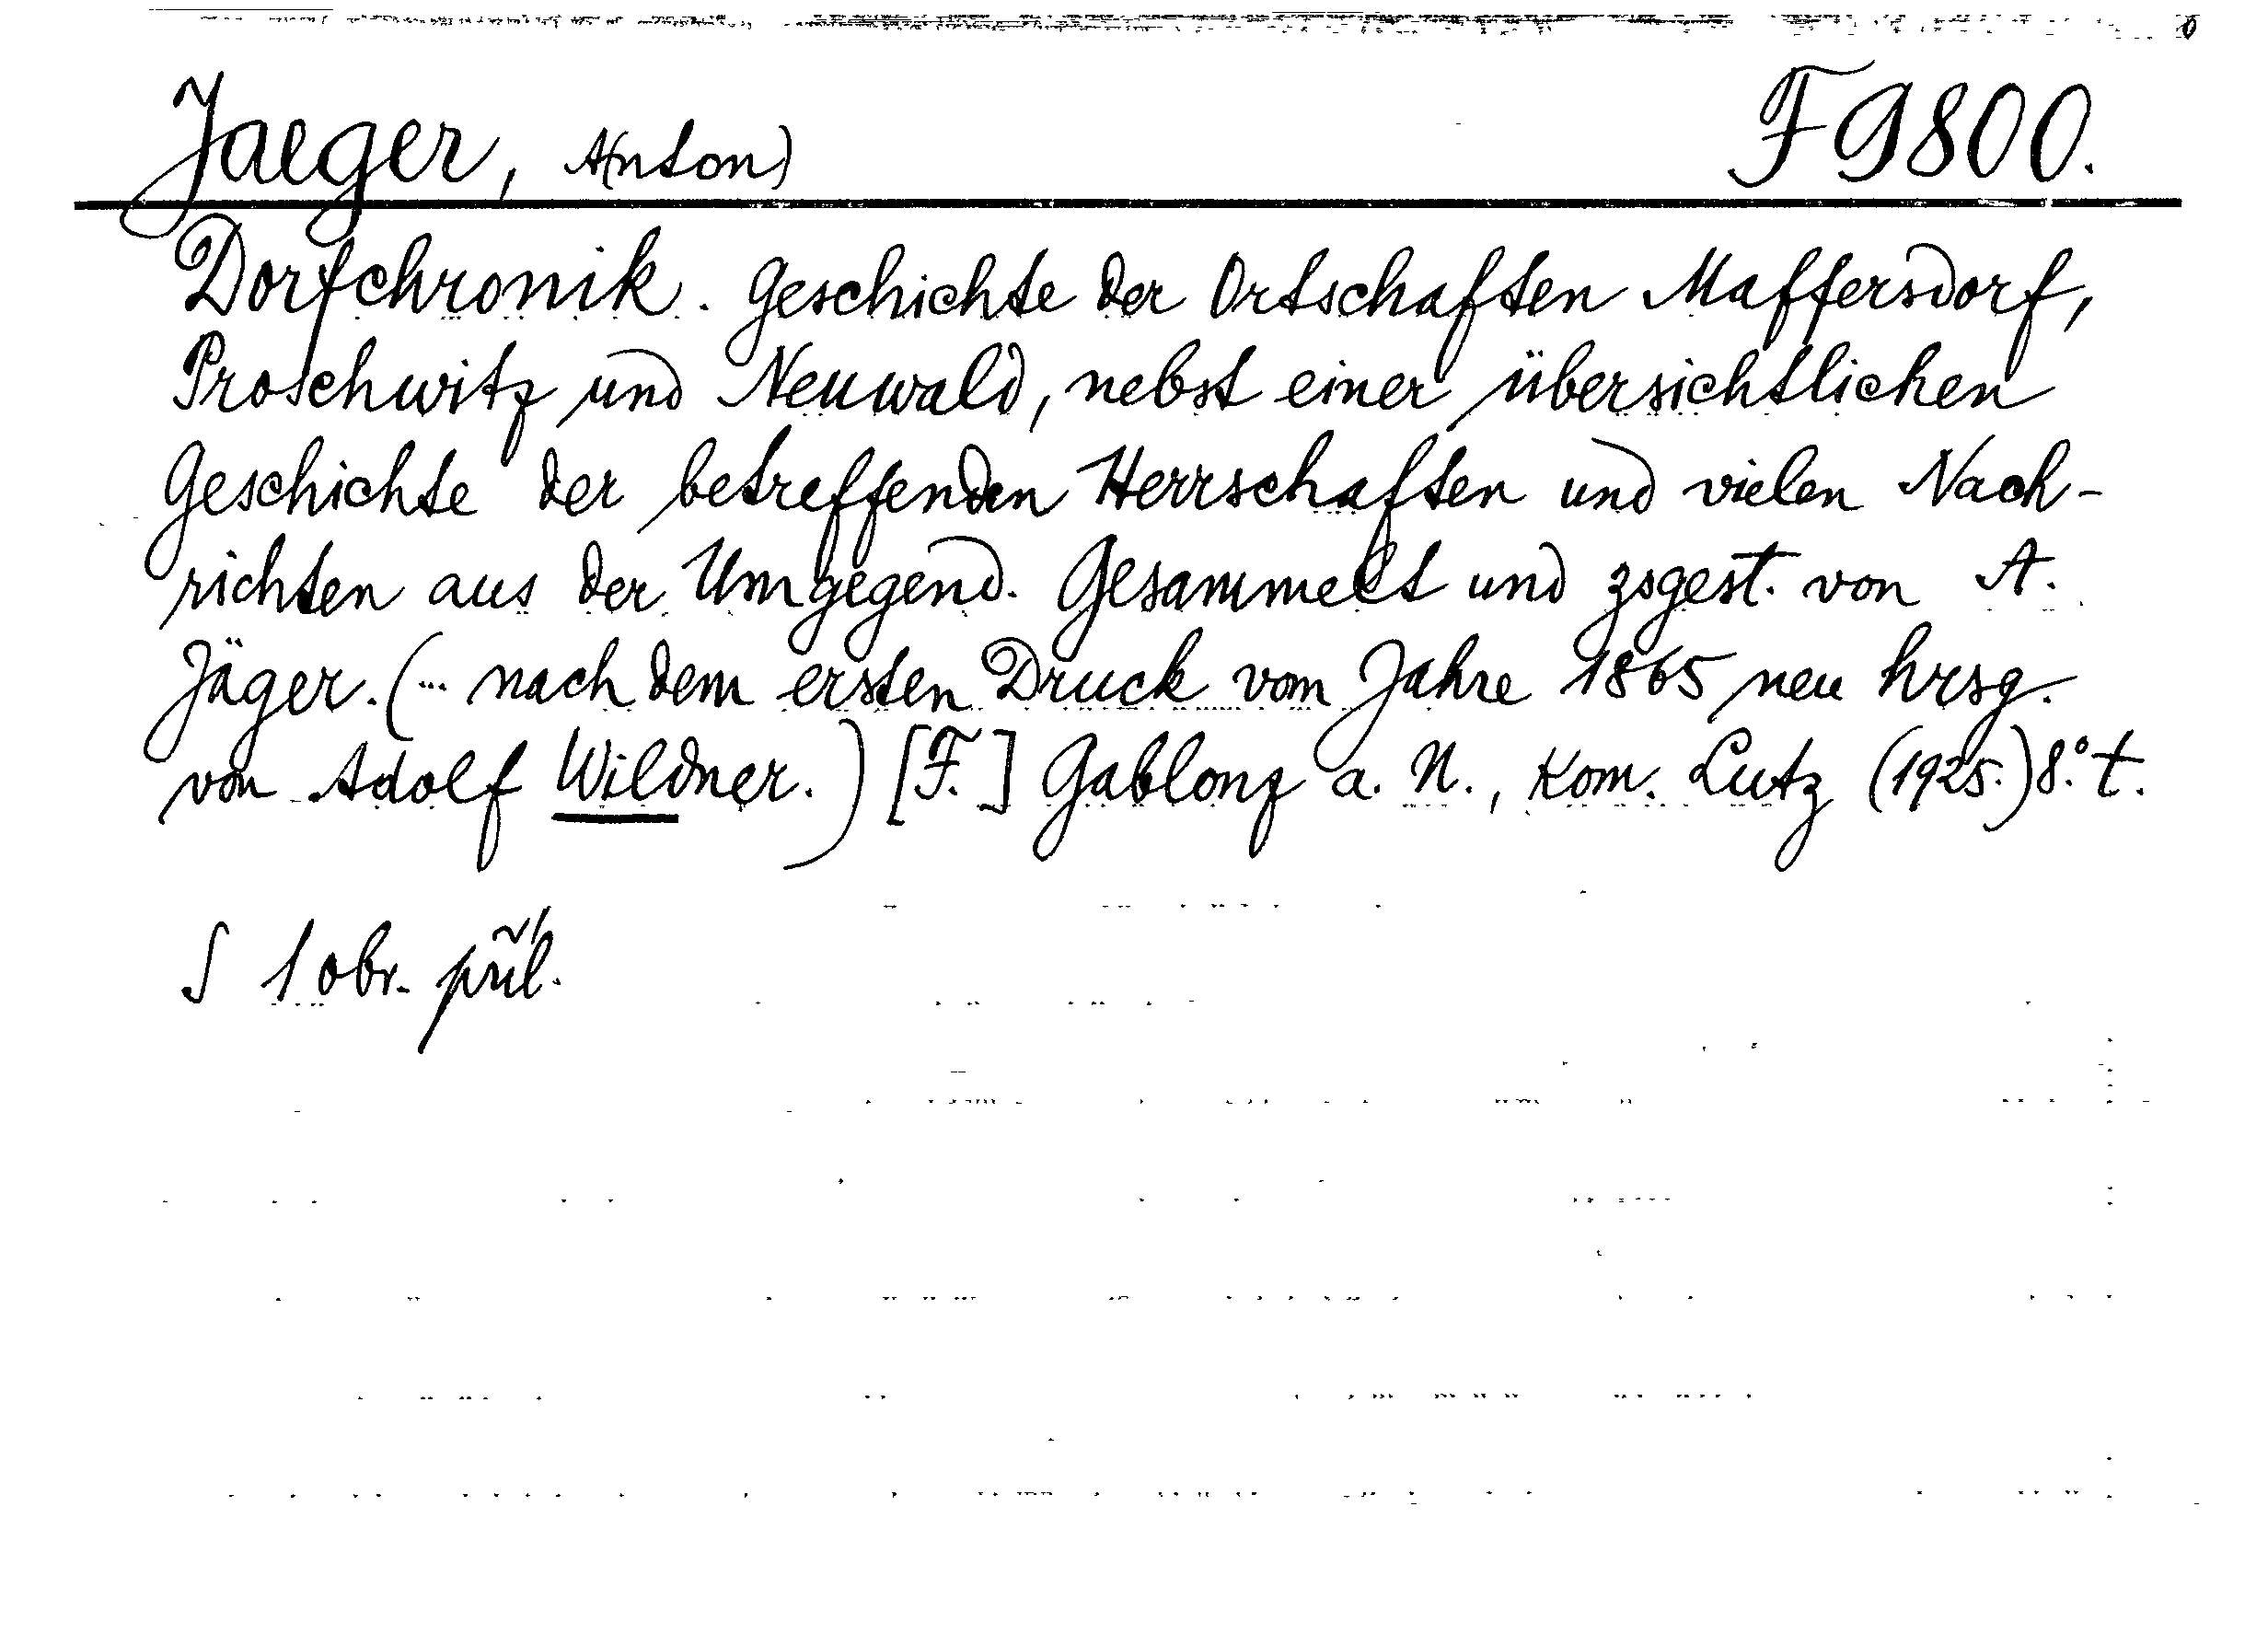 Jaeger, A(nton) F 9800.
Dorfchronik. Geschichte der Ortschaften Maffersdorf,
Proschwitz und Neuwald, nebst einer übersichtlichen
Geschichte der betreffenden Herrschaften und vielen Nach-
richten aus der Umgegend. Gesammelt und zsgest. von A.
Jäger. (... nach dem ersten Druck vom Jahre 1865 neu hrsg.
von Adolf Wildner.) [F.] Gablonz a. N., Kom. Lutz (1925.) 8.° t.
S 1 obr. příl.